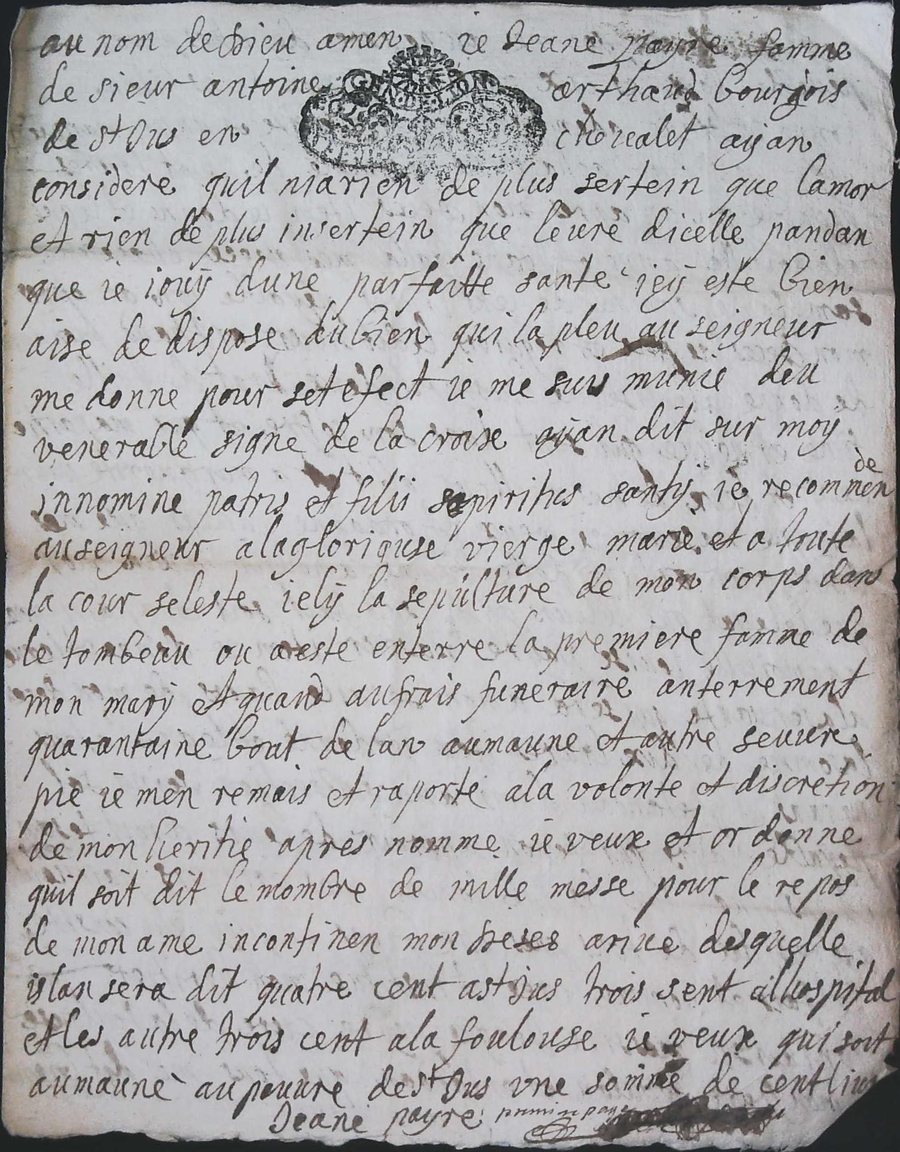 au nom de dieu amen ie Jeane payre famme
de sieur antoine arthaud bourgois
GEN·DE·LION
de st Jus en chevalet ayan
considere quil niarien de plus sertein que lamor
et rien de plus insertein que leure dicelle pandan
que ie iouÿ dune parfaitte sante iey este bien
aise de dispose du bien qui la pleu au seigneur
me donne pour setefect ie me suis munie deu
venerable signe de la croix ayan dit sur moy
innomine patris et filii spiritus santÿ ie recommen
de
au seigneur alagloriguse vierge marie et a toute
la cour seleste ielÿ la sepulture de mon corps dans
le tombeau ou a este enterre la premiere famme de
mon marÿ et quand aufrais funeraire anterrement
quarantaine bout de lan aumaune et autre seuure
pie ie men remais et raporte ala volonte et discretion
de mon heritie apres nomme ie veux et ordonne
quil soit dit le mombre de mille messe pour le repos
de mon ame incontinen mon deses arive desquelle
islan sera dit quatre cent ast Jus trois sent allhospital
et les autre trois cent ala foulouse ie veux qui soit
aumaune au peuvre de st Jus vne somme de cent
Jeane payre